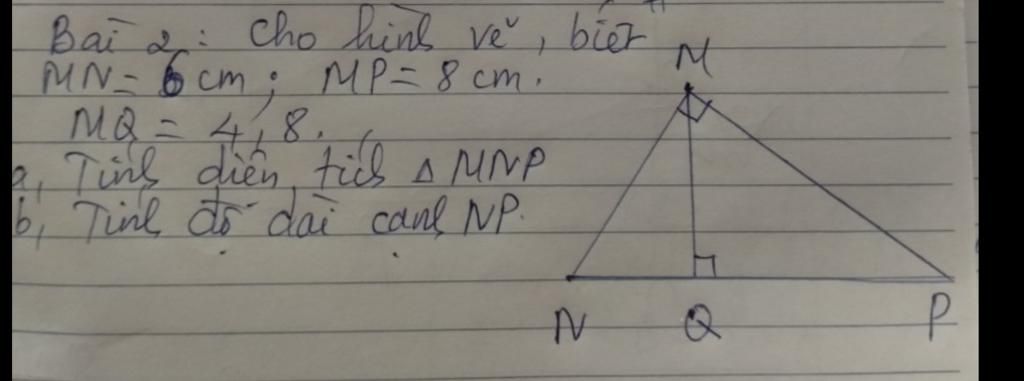 Bài 2: Cho hình vẽ, biết
MN = 6 cm; MP = 8 cm.
MQ = 4,8.
a, Tính diện tích Δ MNP
b, Tính độ dài cạnh NP.
M
N Q P